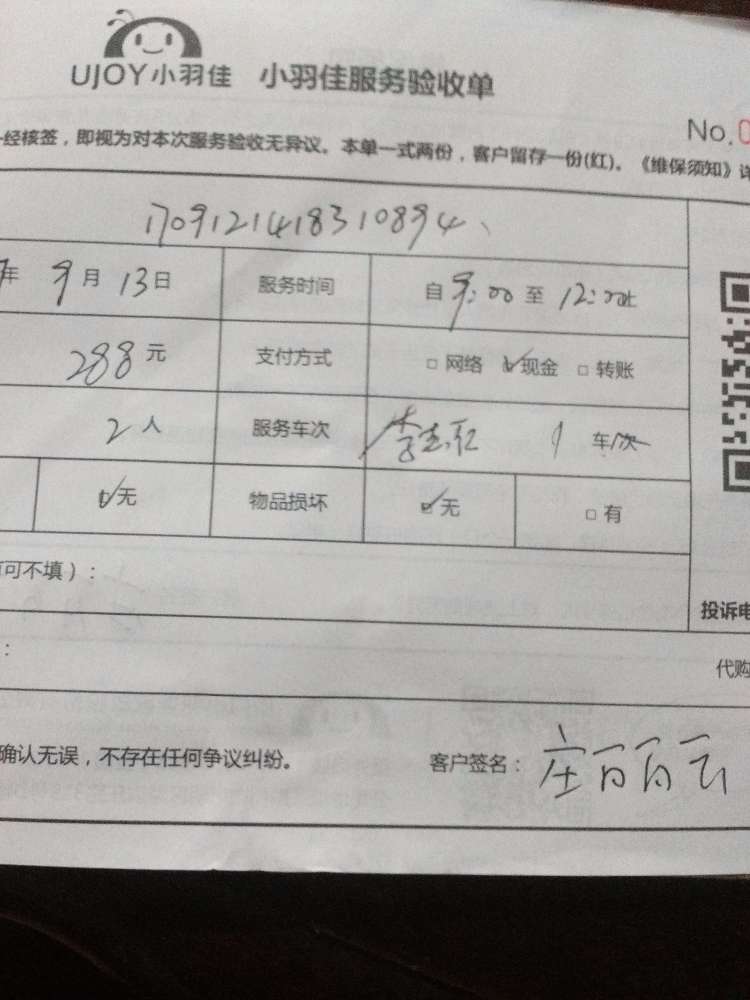 UJOY小羽佳 小羽佳服务验收单
No.0
经核签，即视为对本次服务验收无异议。本单一式两份，客户留存一份(红)。《维保须知》详
1709121418310894
年 9月13日 服务时间 自9:00至12:00止
288元 支付方式 □网络 ☑现金 □转账
2人 服务车次 1 车/次
☑无 物品损坏 ☑无 □有
可不填）：
投诉电
：
代购
确认无误，不存在任何争议纠纷。 客户签名：庄丽云